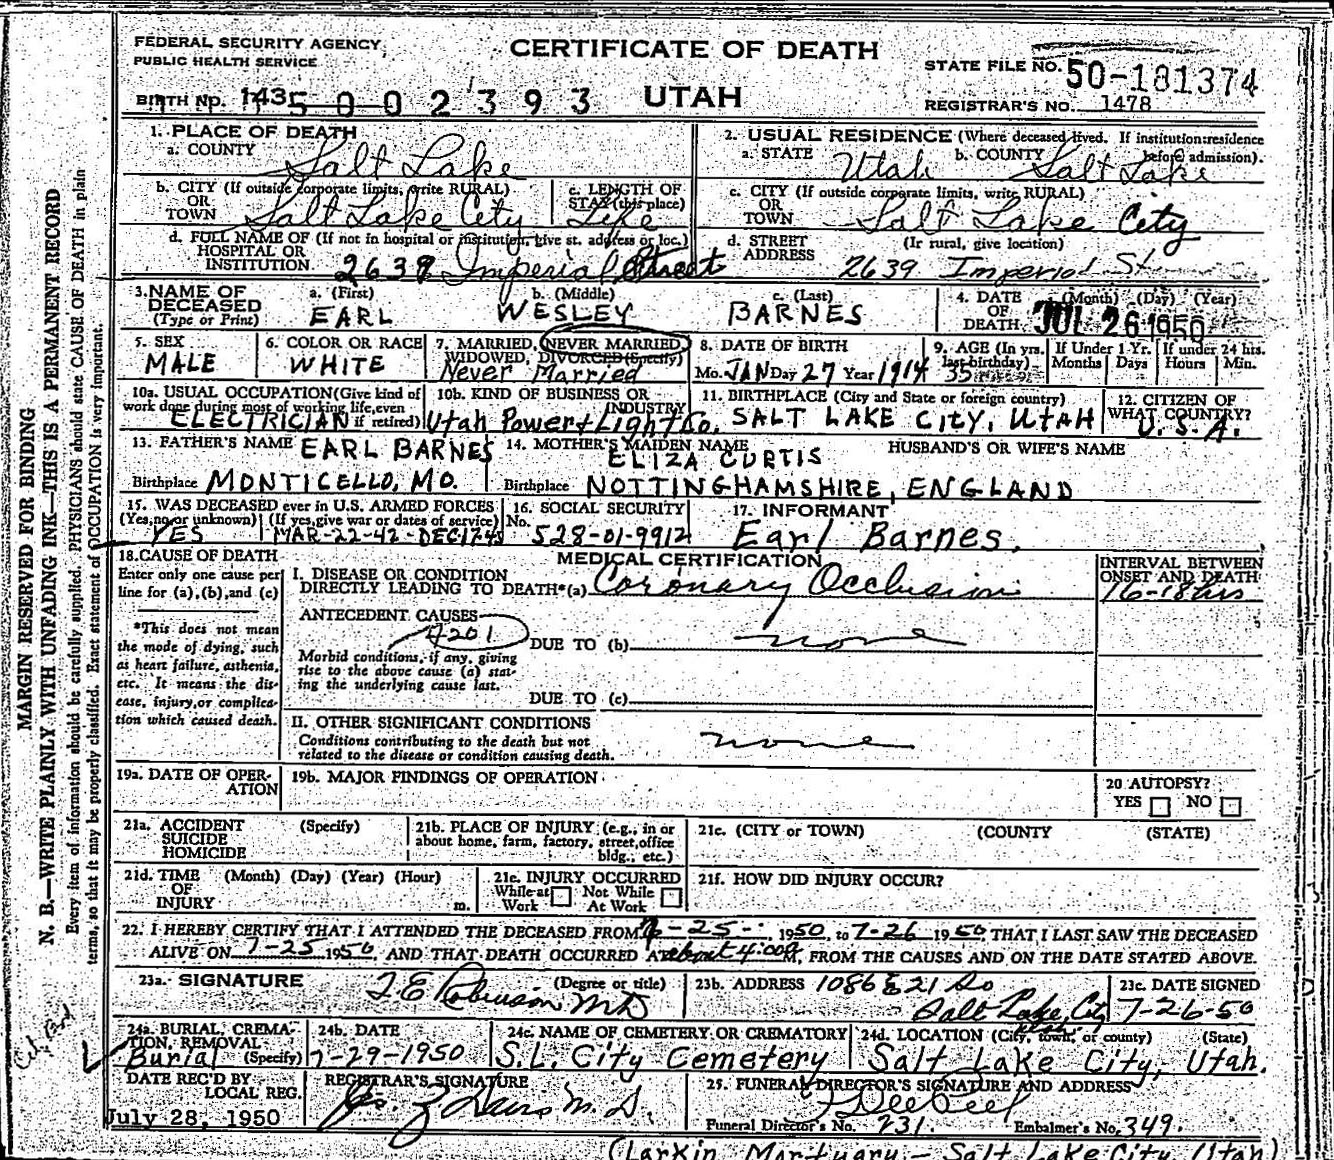 FEDERAL SECURITY AGENCY
PUBLIC HEALTH SERVICE
CERTIFICATE OF DEATH
STATE FILE NO. 50-181374
BIRTH NO. 1435002393
UTAH
REGISTRAR'S NO. 1478
1. PLACE OF DEATH
a. COUNTY Salt Lake
2. USUAL RESIDENCE (Where deceased lived. If institution: residence before admission).
a. STATE Utah b. COUNTY Salt Lake
b. CITY (If outside corporate limits, write RURAL) OR TOWN Salt Lake City
c. LENGTH OF STAY (this place) Life
c. CITY (If outside corporate limits, write RURAL) OR TOWN Salt Lake City
d. FULL NAME OF (If not in hospital or institution, give st. address or loc.) HOSPITAL OR INSTITUTION 2639 Imperial Street
d. STREET ADDRESS (If rural, give location) 2639 Imperial St
3. NAME OF DECEASED (Type or Print)
a. (First) EARL
b. (Middle) WESLEY
c. (Last) BARNES
4. DATE OF DEATH (Month) (Day) (Year) JUL 26 1950
5. SEX MALE
6. COLOR OR RACE WHITE
7. MARRIED, NEVER MARRIED, WIDOWED, DIVORCED (Specify) Never Married
8. DATE OF BIRTH Mo. JAN Day 27 Year 1914
9. AGE (In yrs. last birthday) 35
If Under 1 Yr. Months Days
If under 24 hrs. Hours Min.
10a. USUAL OCCUPATION (Give kind of work done during most of working life, even if retired) ELECTRICIAN
10b. KIND OF BUSINESS OR INDUSTRY Utah Power & Light Co.
11. BIRTHPLACE (City and State or foreign country) SALT LAKE CITY, UTAH
12. CITIZEN OF WHAT COUNTRY? U.S.A.
13. FATHER'S NAME EARL BARNES
Birthplace MONTICELLO, MO.
14. MOTHER'S MAIDEN NAME ELIZA CURTIS
Birthplace NOTTINGHAMSHIRE, ENGLAND
HUSBAND'S OR WIFE'S NAME
15. WAS DECEASED ever in U.S. ARMED FORCES
(Yes, no, or unknown) YES (If yes, give war or dates of service) MAR-22-42-DEC1745
16. SOCIAL SECURITY No. 528-01-9912
17. INFORMANT Earl Barnes.
18. CAUSE OF DEATH
Enter only one cause per line for (a), (b), and (c)
*This does not mean the mode of dying, such as heart failure, asthenia, etc. It means the disease, injury, or complication which caused death.
MEDICAL CERTIFICATION
INTERVAL BETWEEN ONSET AND DEATH
I. DISEASE OR CONDITION DIRECTLY LEADING TO DEATH* (a) Coronary Occlusion 16-18 hrs
ANTECEDENT CAUSES
4201
DUE TO (b) none
Morbid conditions, if any, giving rise to the above cause (a) stating the underlying cause last.
DUE TO (c)
II. OTHER SIGNIFICANT CONDITIONS
Conditions contributing to the death but not related to the disease or condition causing death.
none
19a. DATE OF OPERATION
19b. MAJOR FINDINGS OF OPERATION
20 AUTOPSY?
YES NO
21a. ACCIDENT SUICIDE HOMICIDE (Specify)
21b. PLACE OF INJURY (e.g., in or about home, farm, factory, street, office bldg., etc.)
21c. (CITY or TOWN) (COUNTY (STATE)
21d. TIME OF INJURY (Month) (Day) (Year) (Hour) m.
21e. INJURY OCCURRED
While at Work Not While At Work
21f. HOW DID INJURY OCCUR?
22. I HEREBY CERTIFY THAT I ATTENDED THE DECEASED FROM 7-25- 1950, to 7-26 1950, THAT I LAST SAW THE DECEASED
ALIVE ON 7-25 1950, AND THAT DEATH OCCURRED AT about 4:00 A M, FROM THE CAUSES AND ON THE DATE STATED ABOVE.
23a. SIGNATURE (Degree or title) Robinson MD
23b. ADDRESS 1086 E 21 So Salt Lake City Utah
23c. DATE SIGNED 7-26-50
24a. BURIAL, CREMATION, REMOVAL (Specify) Burial
24b. DATE 7-29-1950
24c. NAME OF CEMETERY OR CREMATORY S.L. City Cemetery
24d. LOCATION (City, town, or county) (State) Salt Lake City, Utah.
DATE REC'D BY LOCAL REG. July 28, 1950
REGISTRAR'S SIGNATURE M.D.
25. FUNERAL DIRECTOR'S SIGNATURE AND ADDRESS
Funeral Director's No. 231. Embalmer's No. 349.
(Larkin Mortuary - Salt Lake City, Utah)
MARGIN RESERVED FOR BINDING
N. B.—WRITE PLAINLY WITH UNFADING INK—THIS IS A PERMANENT RECORD
Every item of information should be carefully supplied. PHYSICIANS should state CAUSE OF DEATH in plain
terms, so that it may be properly classified. Exact statement of OCCUPATION is very important.